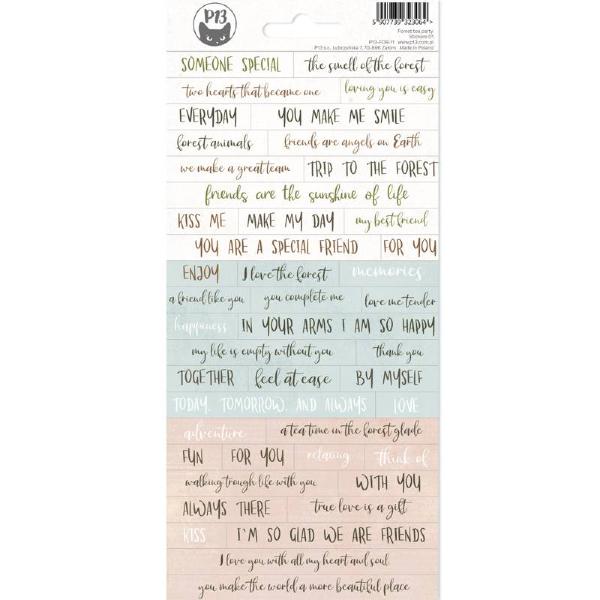 P13
5 907739 323064
Forest tea party
Stickers 01
P13-FOR-11 www.p13.com.pl
Made in Poland
SOMEONE SPECIAL the smell of the forest
two hearts that became one loving you is easy
EVERYDAY YOU MAKE ME SMILE
forest animals friends are angels on Earth
we make a great team TRIP TO THE FOREST
friends are the sunshine of life
KISS ME MAKE MY DAY my best friend
YOU ARE A SPECIAL FRIEND FOR YOU
ENJOY I love the forest memories
a friend like you you complete me love me tender
happiness IN YOUR ARMS I AM SO HAPPY
my life is empty without you thank you
TOGETHER feel at ease BY MYSELF
TODAY, TOMORROW, AND ALWAYS LOVE
adventure a tea time in the forest glade
FUN FOR YOU relaxing think of
walking trough life with you WITH YOU
ALWAYS THERE true love is a gift
KISS I'M SO GLAD WE ARE FRIENDS
I love you with all my heart and soul
you make the world a more beautiful place